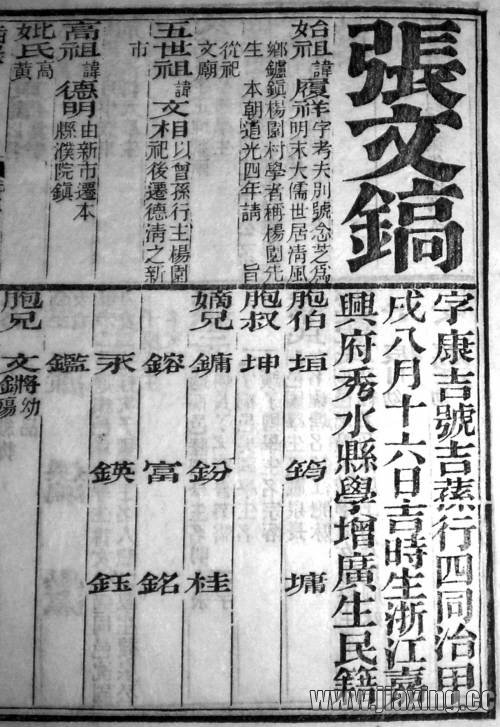 張文鎬
字康吉號吉蓀行四同治甲
戌八月十六日吉時生浙江嘉
興府秀水縣學增廣生民籍
始祖諱履祥字考夫別號念芝爲
祀明末大儒世居清風
鄉鑪鎮楊園村學者稱楊園先
生 本朝道光四年請 旨
從祀
文廟
五世祖諱文相以曾孫行主楊園
祀後遷德清之新
市
高祖諱德明由新市遷本
縣濮院鎮
妣氏高
黃
胞伯 垣 筠 墉
胞叔 坤
嫡兄 鏞 鈖 桂
鎔 富 銘
永 鍈 鈺
鑑
胞兄 文鏘幼
www.jiaxing.cc